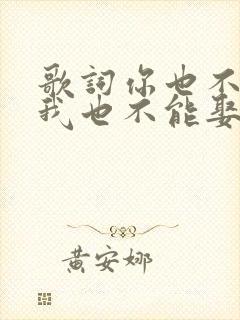 歌詞你也不
我也不能娶
黄安娜